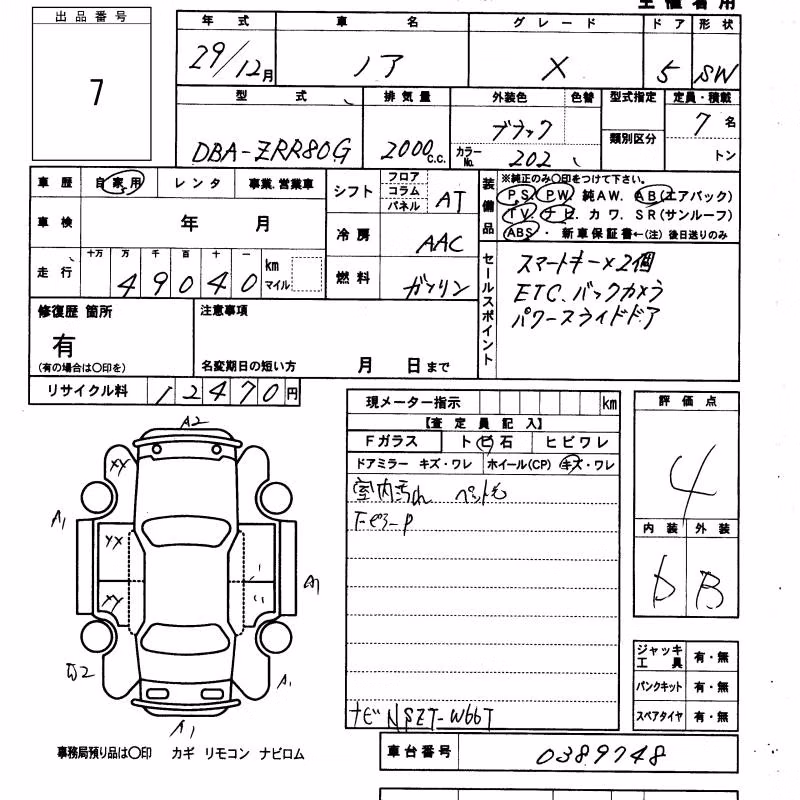 出品番号
7
年式 車名 グレード ドア 形状
29/12月 ノア X 5 SW
型式 排気量 外装色 色替 型式指定 定員・積載
DBA-ZRR80G 2000c.c. ブラック 7名
カラーNo. 202 類別区分 トン
車歴 自家用 レンタ 事業.営業車
シフト フロア コラム パネル AT
車検 年 月
冷房 AAC
走行 十万 万 千 百 十 一 km マイル
49040
燃料 ガソリン
装備品
※純正のみ〇印をつけて下さい。
P.S P.W. 純AW. AB(エアバック)
TV. ナビ. カワ. SR(サンルーフ)
ABS・新車保証書←(注)後日送りのみ
セールスポイント
スマートキー×2個
ETC、バックカメラ
パワースライドドア
修復歴 箇所
有
(有の場合は〇印を)
注意事項
名変期日の短い方 月 日まで
リサイクル料 12470円
現メーター指示 km
【査定員記入】
Fガラス トビ石 ヒビワレ
ドアミラー キズ・ワレ ホイール(CP) キズ・ワレ
室内汚れ ペット毛
ナビ NSZT-W66T
評価点
4
内装 外装
D B
ジャッキ工具 有・無
パンクキット 有・無
スペアタイヤ 有・無
A2
XX
A1
YX
A1
A1
A1
事務局預り品は〇印 カギ リモコン ナビロム
車台番号 0389748